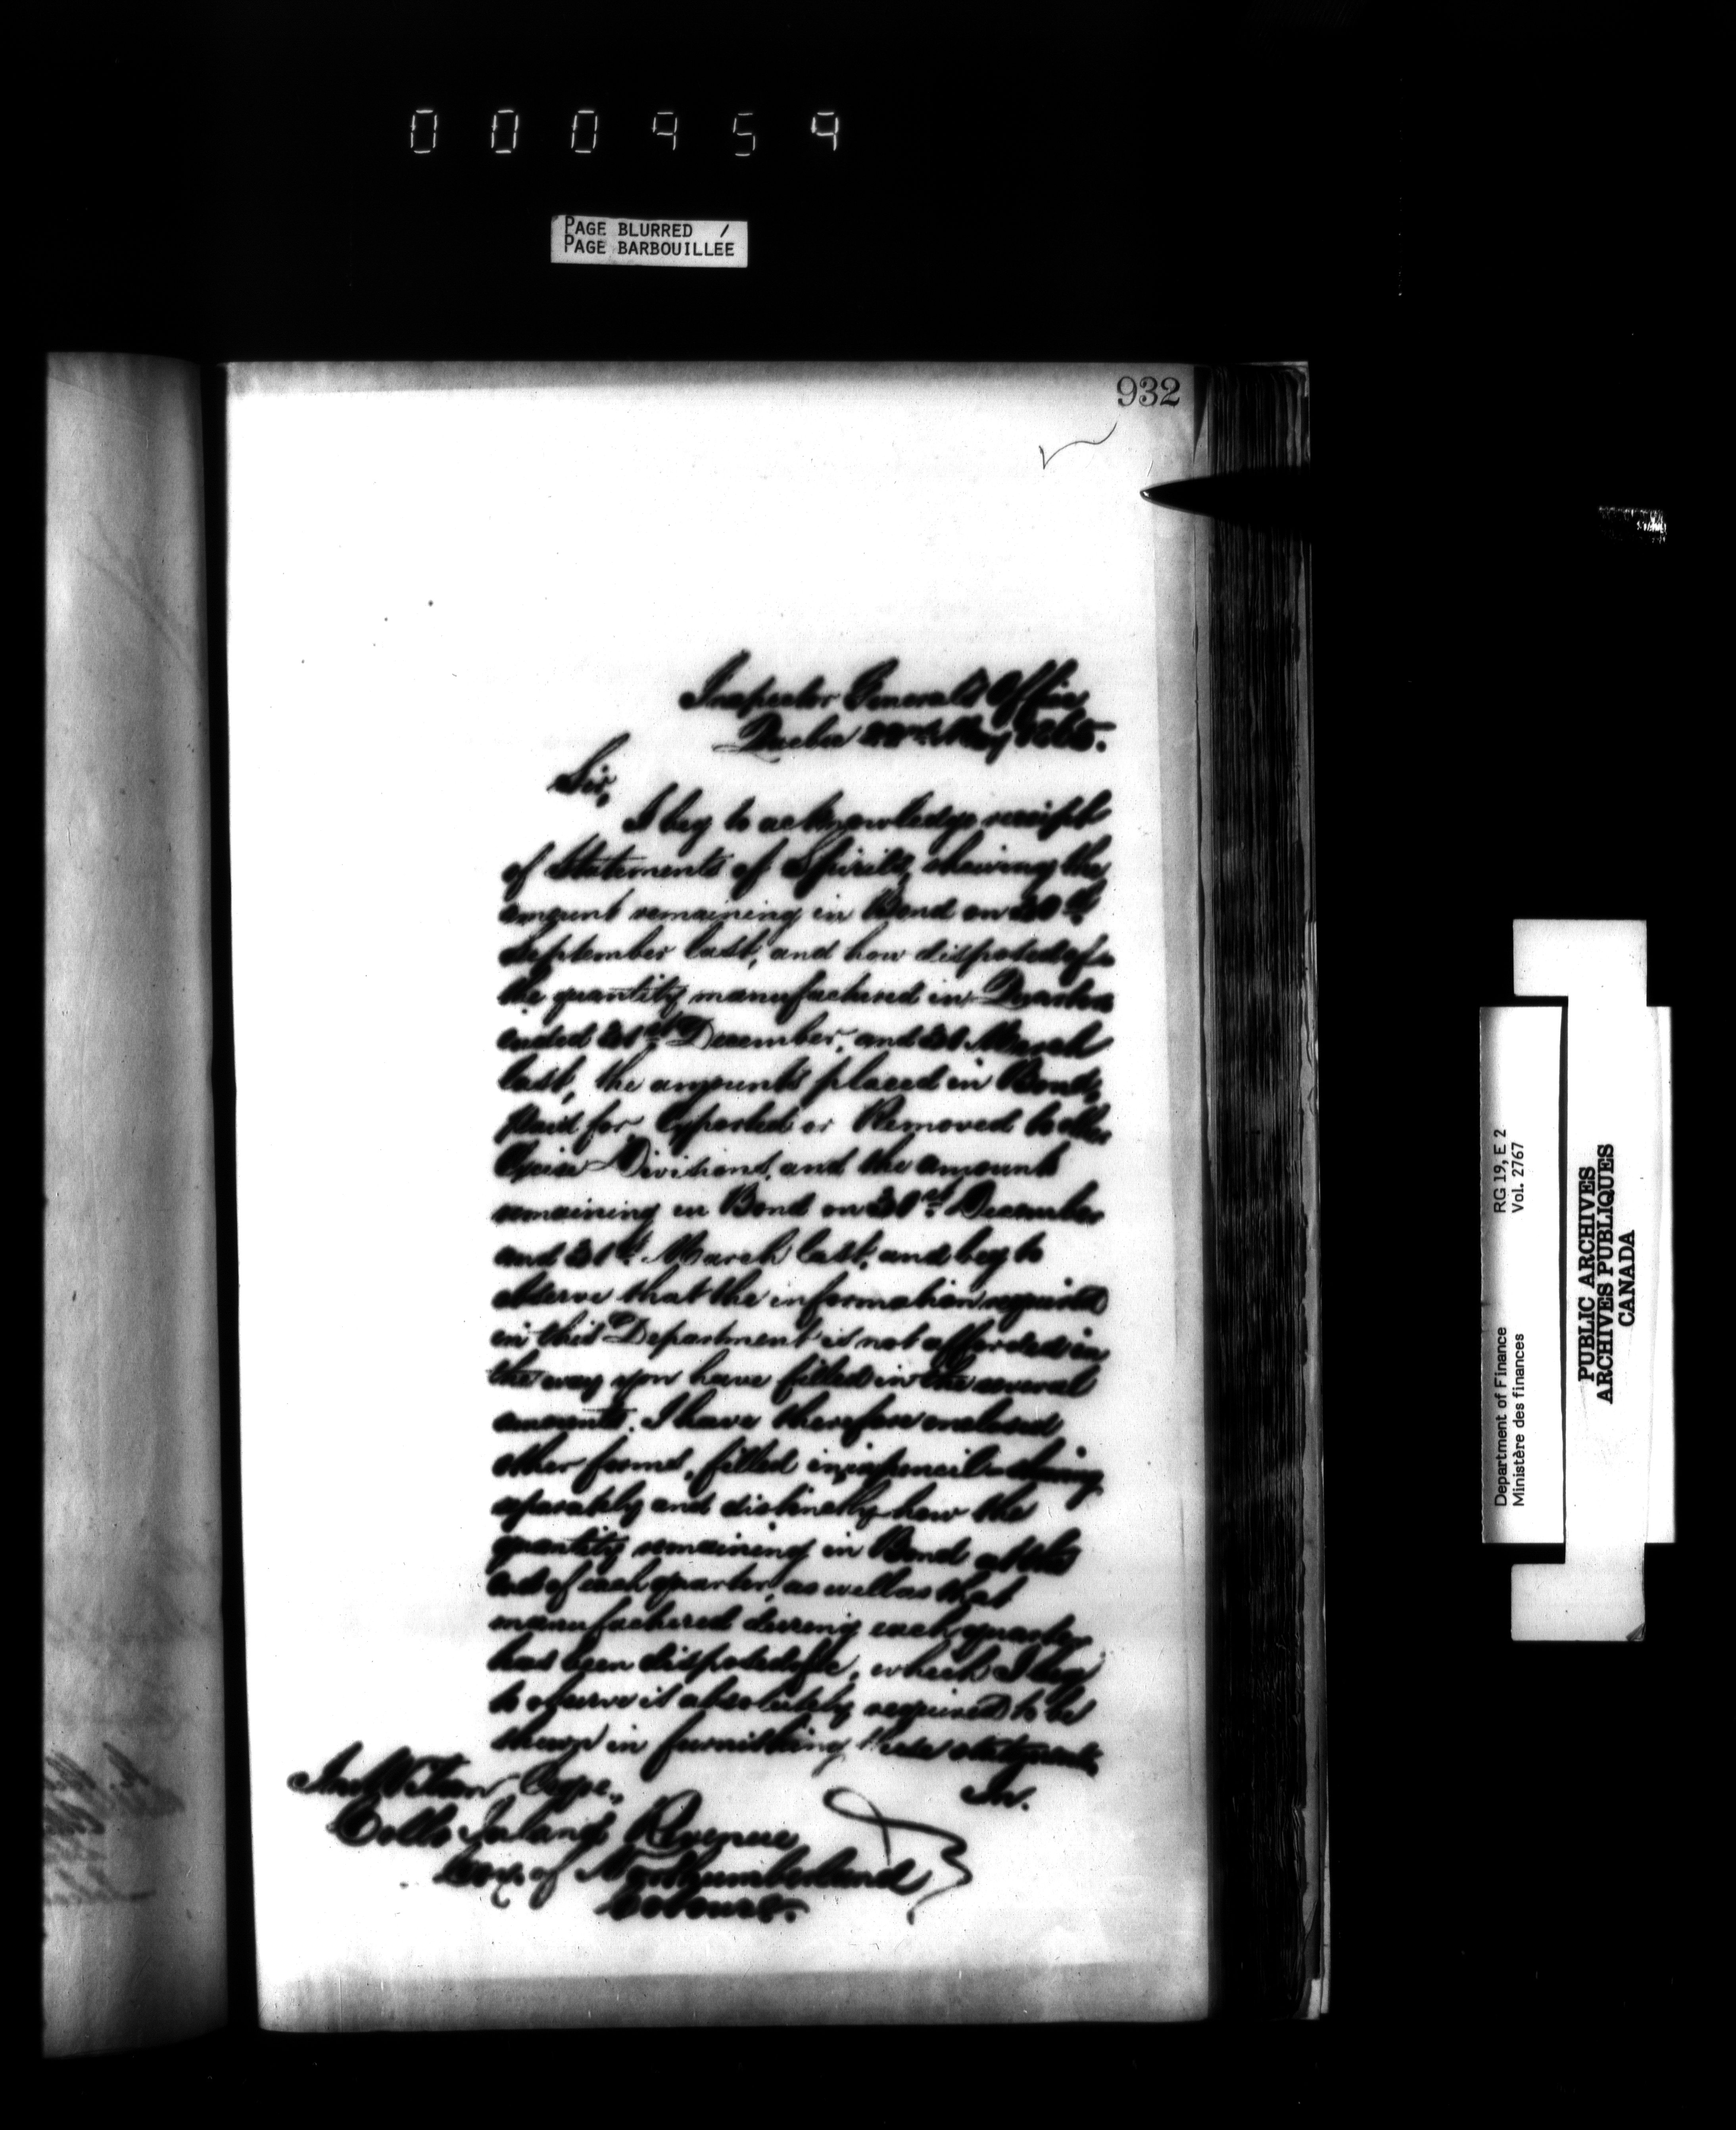 000959
PAGE BLURRED /
PAGE BARBOUILLEE
932
Inspector General's Office
Quebec 22nd May 1865.
Sir,
I beg to acknowledge receipt
of Statements of Spirits, shewing the
amount remaining in Bond on 30th
September last, and how disposed of -
the quantity manufactured in Quarters
ended 31st December, and 31 March
last, the amounts placed in Bond,
paid for, Exported or Removed to other
Excise Divisions, and the amount
remaining in Bond on 31st December
and 31st March last, and beg to
observe that the information required
in this Department is not afforded in
the way you have filled in the several
amounts. I have therefore enclosed
other forms, filled in, in pencil - shewing
separately and distinctly how the
quantity remaining in Bond at the
end of each quarter, as well as that
manufactured during each quarter
has been disposed of, which I beg
to observe is absolutely required to be
shewn in furnishing these statements
In.
Esqre.,
Collr Inland Revenue
Coy. of Northumberland
Cobourg.
Department of Finance RG 19, E 2
Ministère des finances Vol. 2767
PUBLIC ARCHIVES
ARCHIVES PUBLIQUES
CANADA